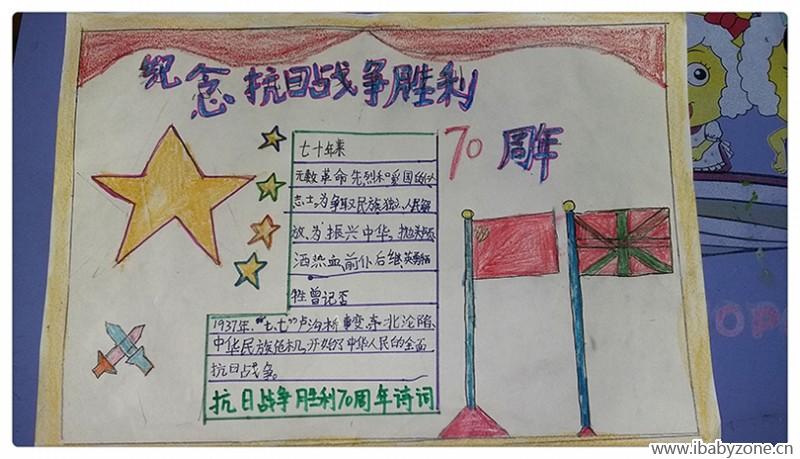 纪念抗日战争胜利
70周年
七十年来
无数革命先烈和爱国的仁
志士,为争取民族独立,人民解
放,为振兴中华,抛头颅
洒热血,前仆后继,英勇牺
牲曾记否
1937年,"七七"卢沟桥事变,东北沦陷,
中华民族危机,开始了中华人民的全面
抗日战争。
抗日战争胜利70周年诗词
OP
www.ibabyzone.cn